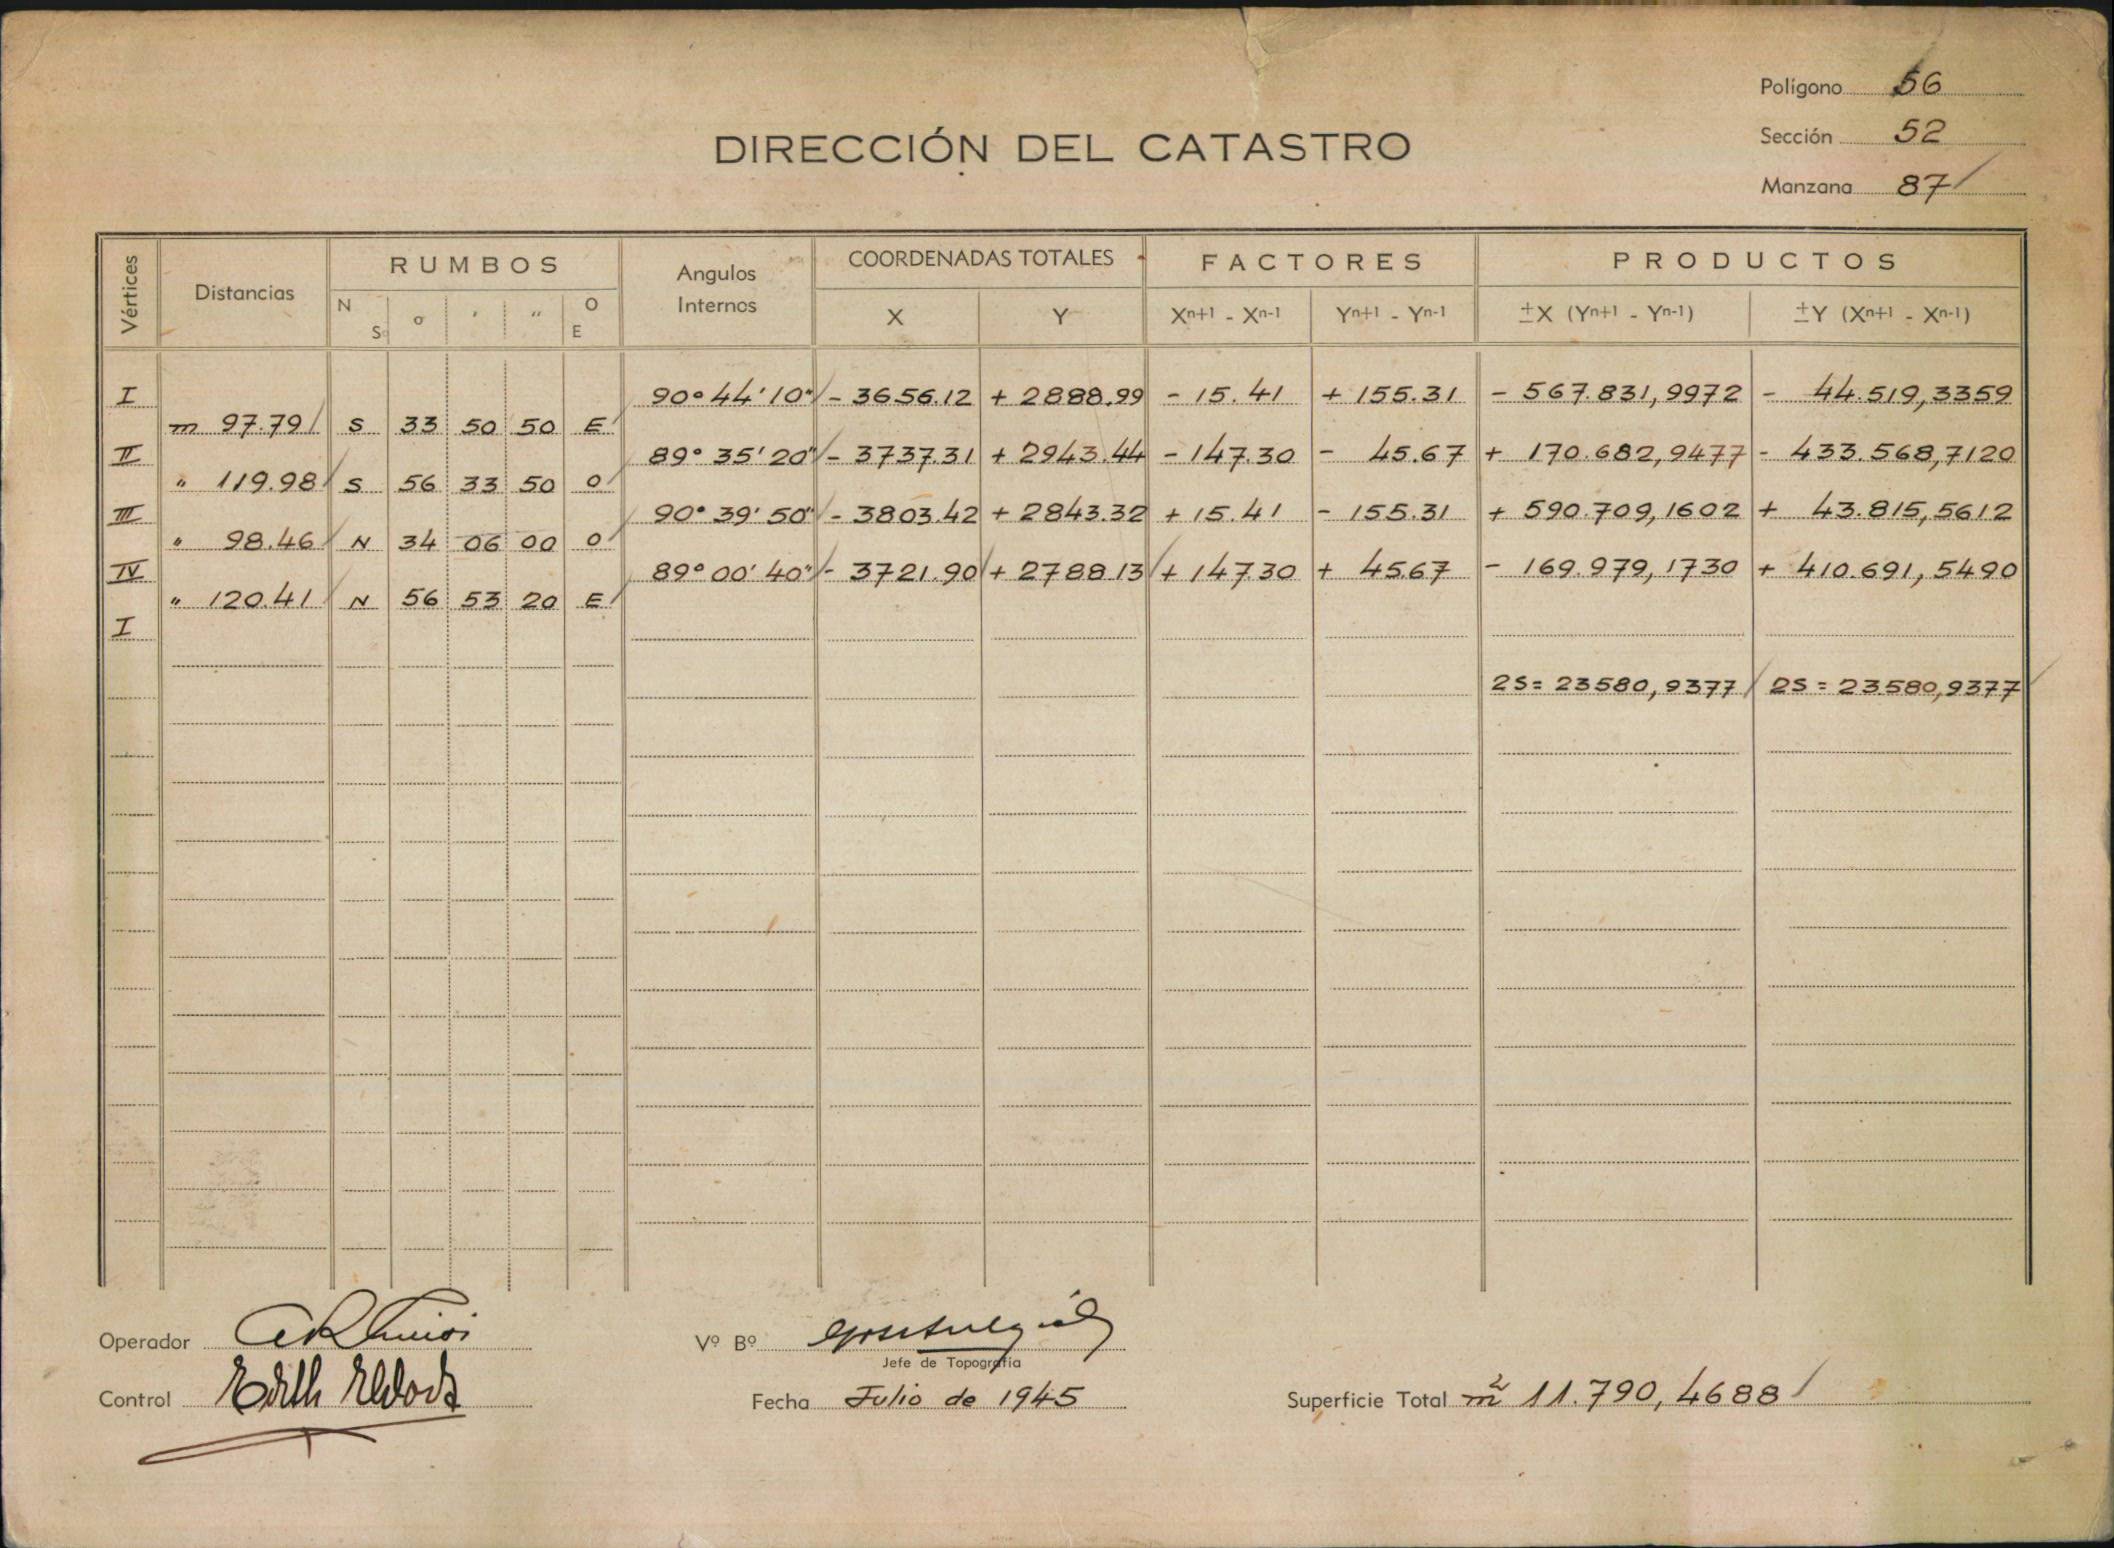 Polígono 56
Sección 52
Manzana 87
DIRECCIÓN DEL CATASTRO
Vértices Distancias RUMBOS Angulos Internos COORDENADAS TOTALES FACTORES PRODUCTOS
N S o ' " O E X Y Xn+1 - Xn-1 Yn+1 - Yn-1 ±X (Yn+1 - Yn-1) ±Y (Xn+1 - Xn-1)
I 90° 44' 10" - 3656.12 + 2888.99 - 15.41 + 155.31 - 567.831,9972 - 44.519,3359
m 97.79 S 33 50 50 E
II 89° 35' 20" - 3737.31 + 2943.44 - 147.30 - 45.67 + 170.682,9477 - 433.568,7120
" 119.98 S 56 33 50 O
III 90° 39' 50" - 3803.42 + 2843.32 + 15.41 - 155.31 + 590.709,1602 + 43.815,5612
" 98.46 N 34 06 00 O
IV 89° 00' 40" - 3721.90 + 2788.13 + 147.30 + 45.67 - 169.979,1730 + 410.691,5490
" 120.41 N 56 53 20 E
I
2S = 23580,9377 2S = 23.580,9377
Operador
Vº Bº
Jefe de Topografía
Control Edith
Fecha Julio de 1945
Superficie Total m² 11.790,4688